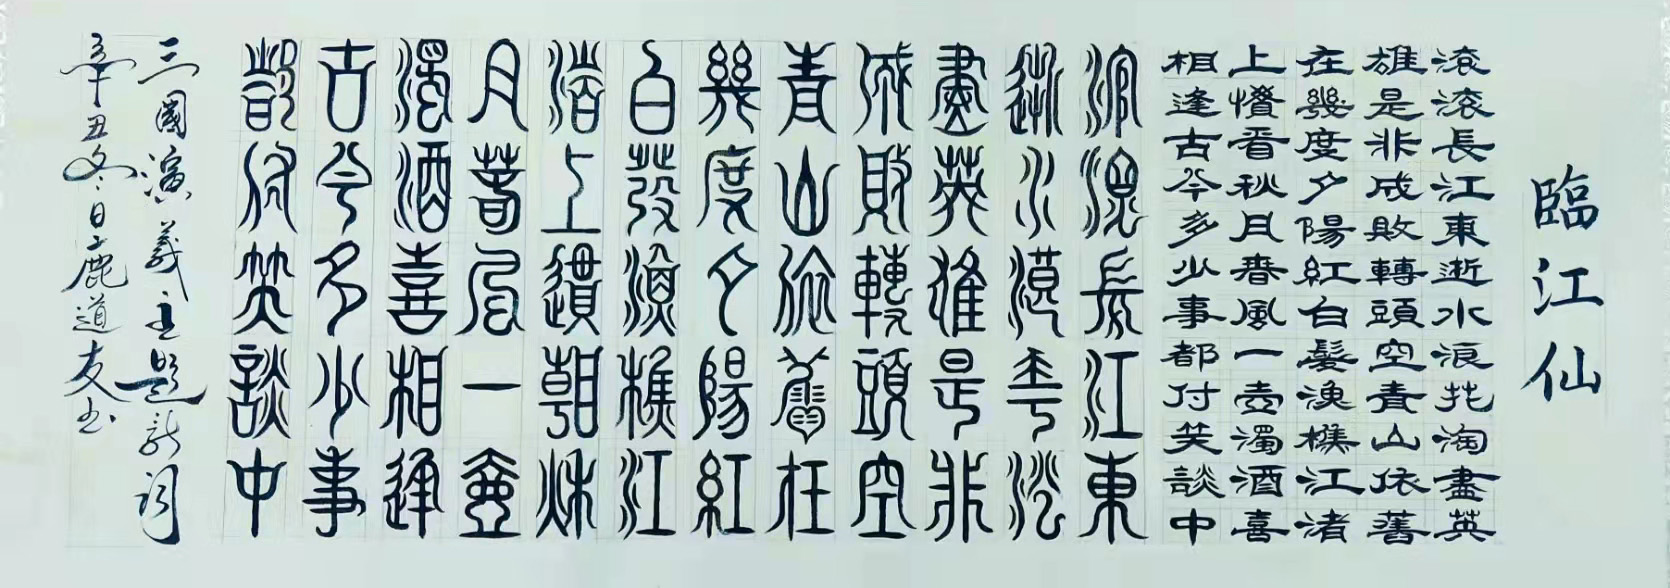 臨江仙
滾滾長江東逝水浪花淘盡英
雄是非成敗轉頭空青山依舊
在幾度夕陽紅白髮漁樵江渚
上慣看秋月春風一壺濁酒喜
相逢古今多少事都付笑談中
滾滾長江東
逝水浪花淘
盡英雄是非
成敗轉頭空
青山依舊在
幾度夕陽紅
白發漁樵江
渚上慣看秋
月春風一壺
濁酒喜相逢
古今多少事
都付笑談中
三國演義主題歌词
辛丑冬日鹿道友书